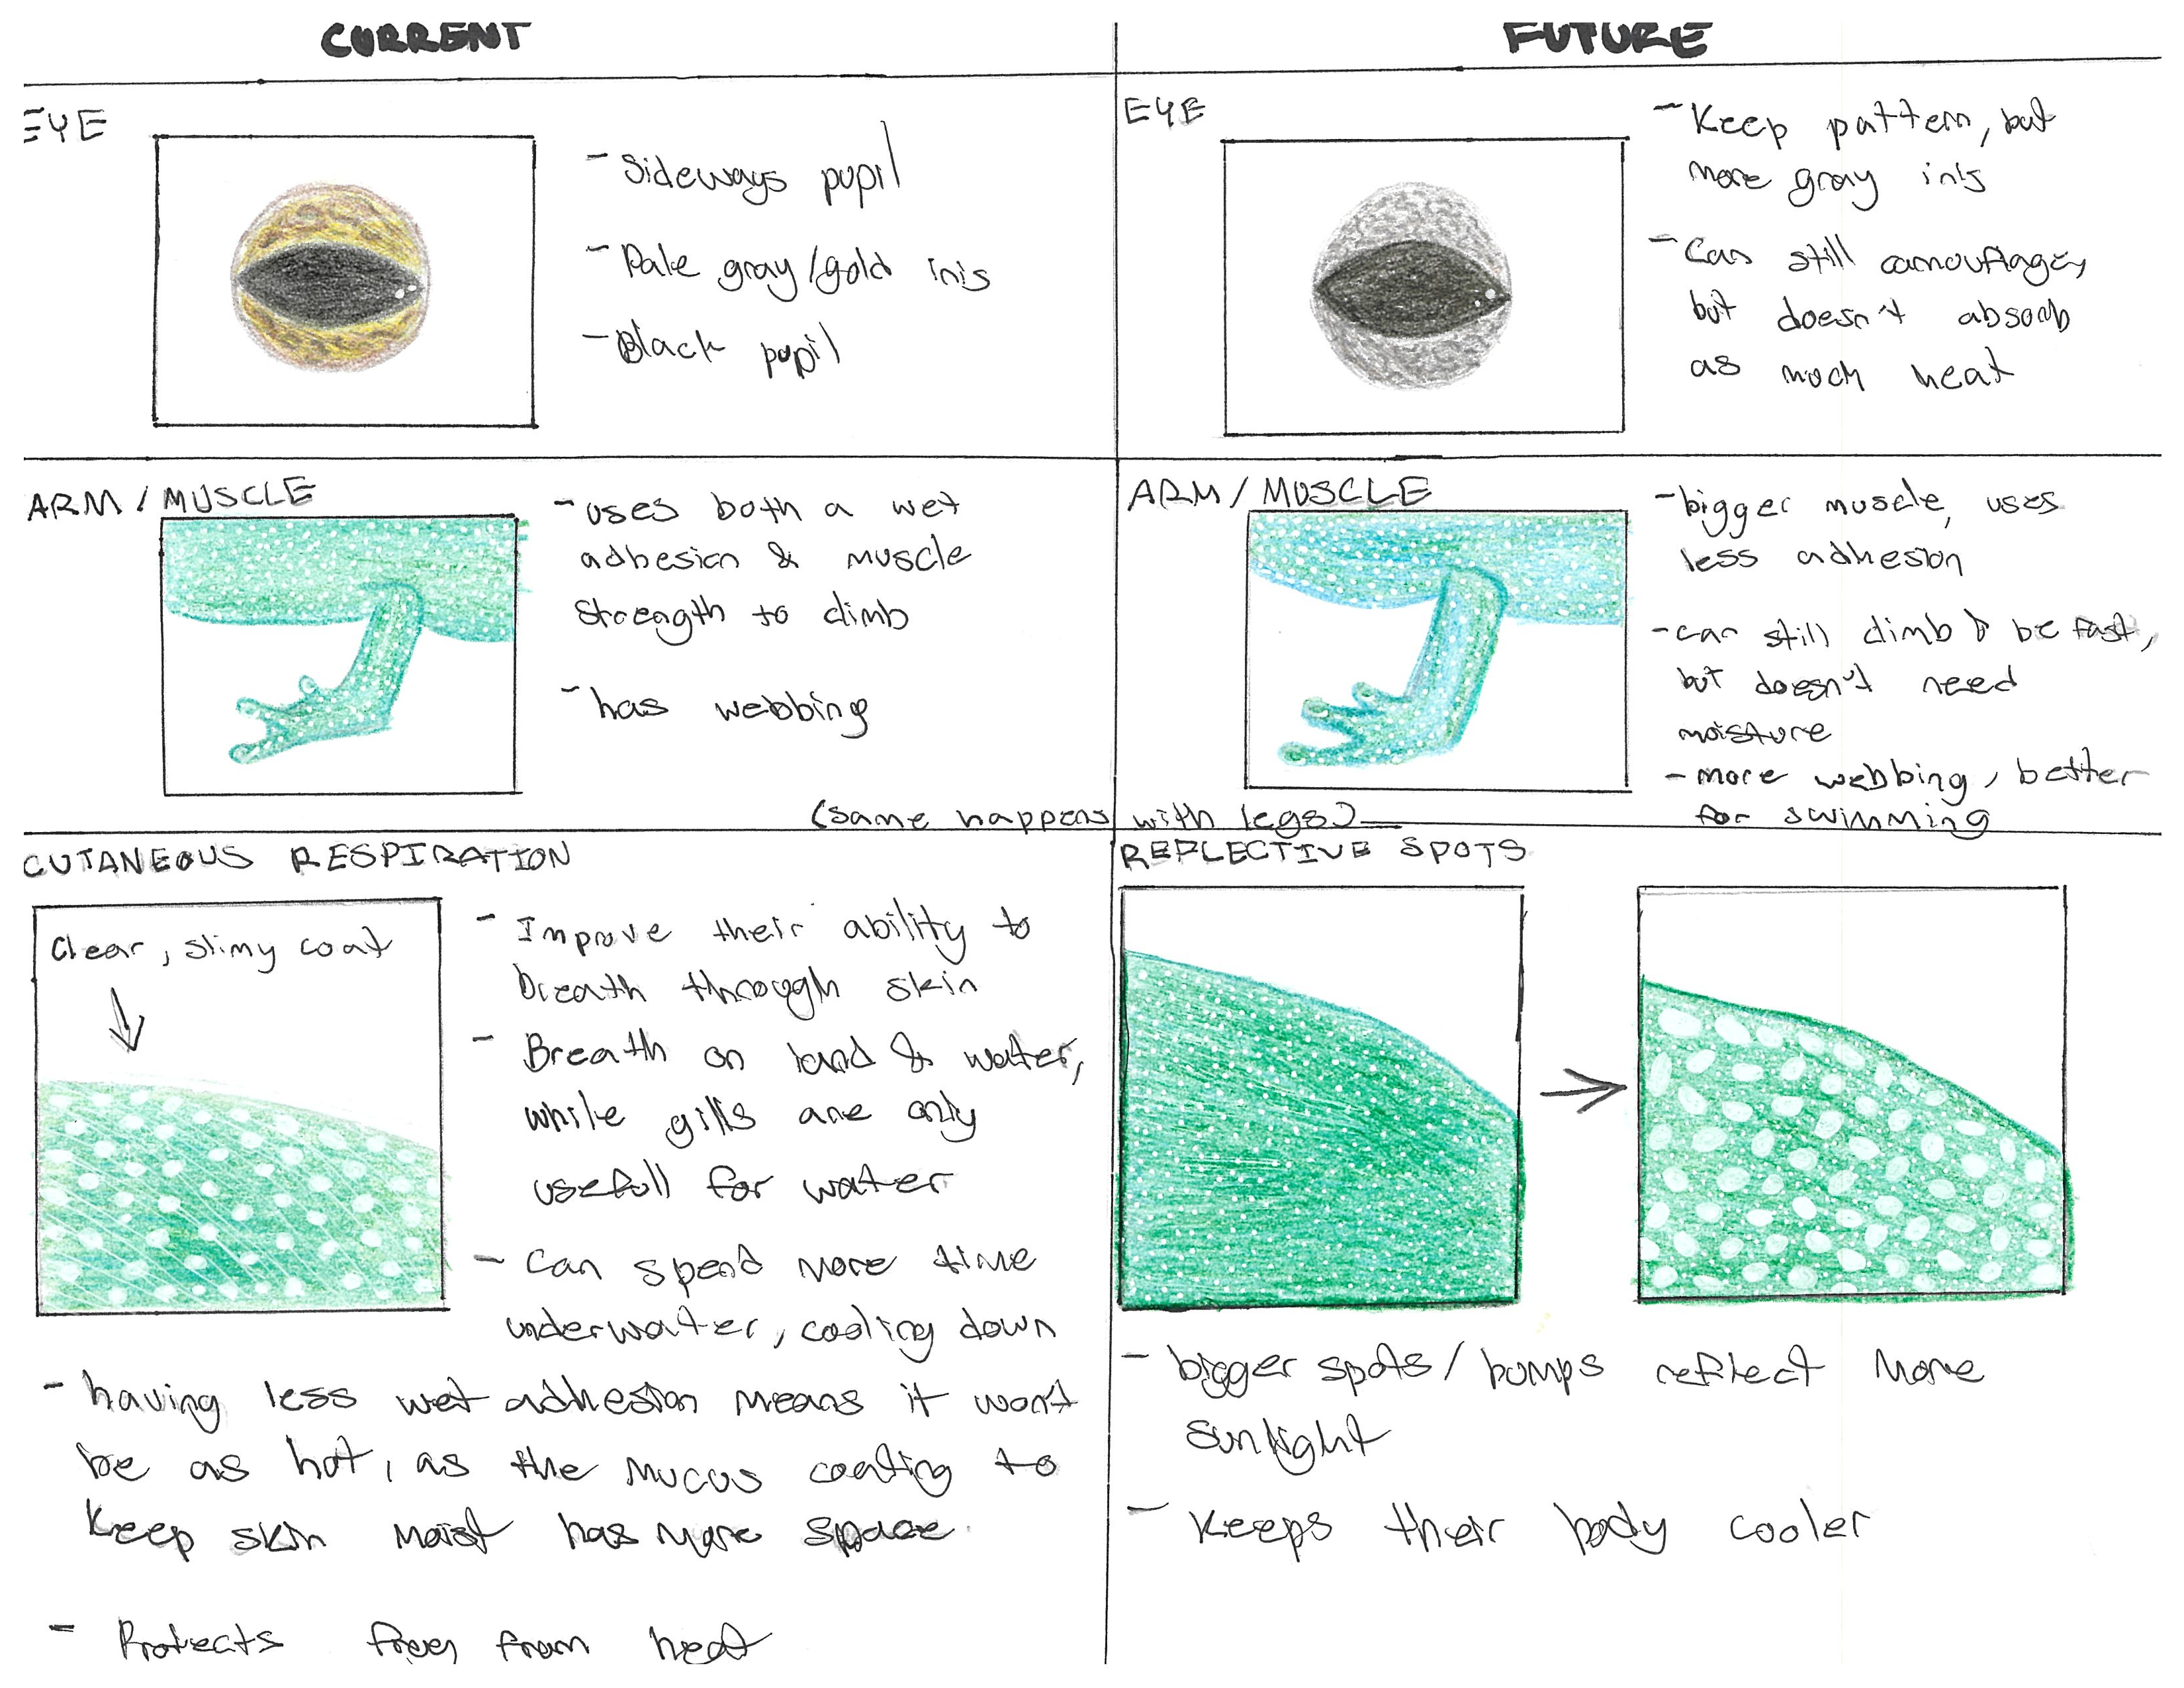 CURRENT
FUTURE
EYE
- Sideways pupil
- Pale gray/gold iris
- Black pupil
EYE
- Keep pattern, but
more gray iris
- Can still camouflage,
but doesn't absorb
as much heat
ARM / MUSCLE
- uses both a wet
adhesion & muscle
strength to climb
- has webbing
ARM / MUSCLE
- bigger muscle, uses
less adhesion
- can still climb & be fast,
but doesn't need
moisture
- more webbing, better
for swimming
(same happens with legs)
CUTANEOUS RESPIRATION
Clear, slimy coat
- Improve their ability to
breath through skin
- Breath on land & water,
while gills are only
usefull for water
- Can spend more time
underwater, cooling down
- having less wet adhesion means it won't
be as hot, as the mucus coating to
keep skin moist has more space.
- Protects frog from heat
REFLECTIVE SPOTS
- bigger spots / bumps reflect more
sunlight
- Keeps their body cooler